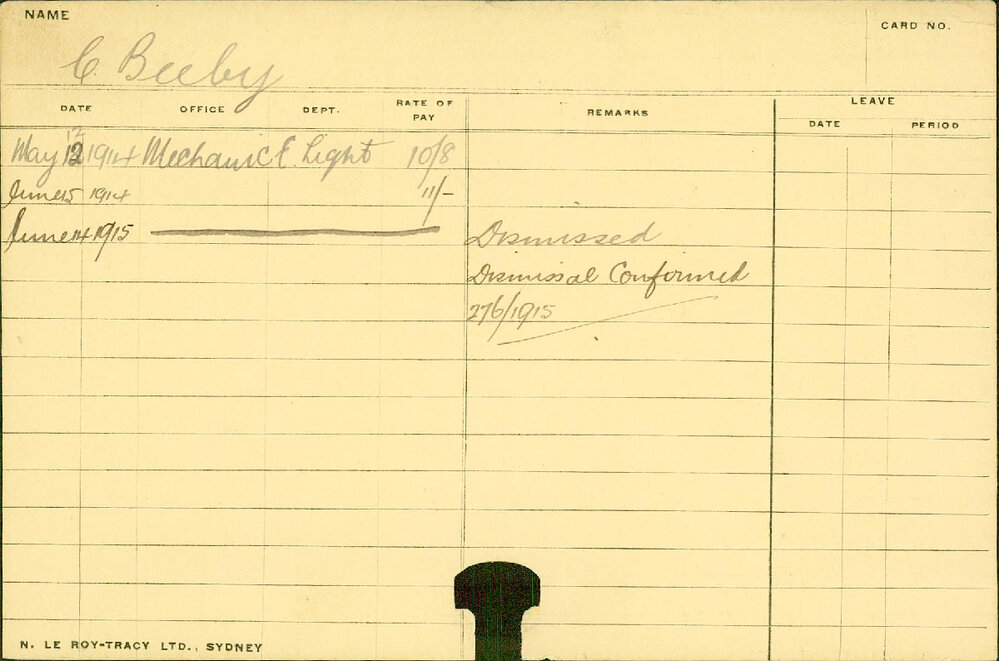 NAME
CARD NO.
C. Beeby
DATE OFFICE DEPT. RATE OF PAY REMARKS LEAVE
DATE PERIOD
May 12 1914 Mechanic E Light 10/8
June 15 1914 11/-
June 14 1915 Dismissed
Dismissal Confirmed
27/6/1915
N. LE ROY-TRACY LTD., SYDNEY